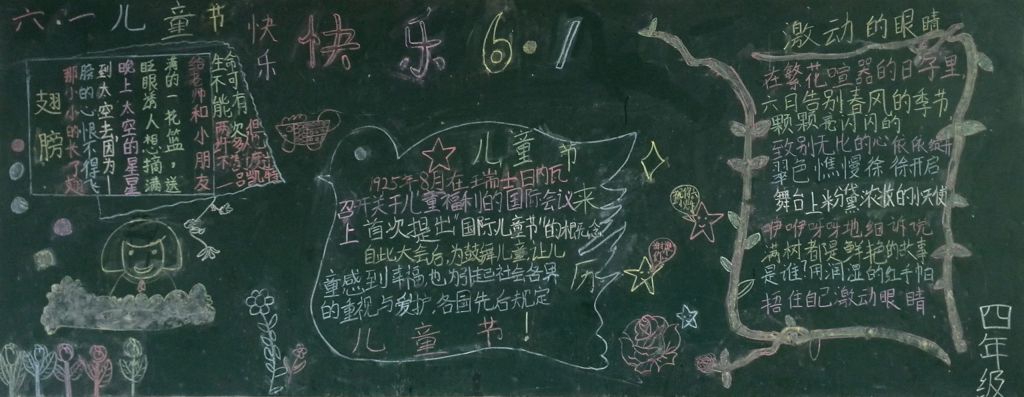 六·一儿童节
快乐
快乐6·1
翅膀
给老师和小朋友
满的一花篮,送
眨眼诱人想摘满
晚上太空的星星
到太空去因为—
膀的心恨不得
那小小的长了翅
儿童节
1925年8月在瑞士日内瓦
召开关于儿童福利的国际会议
上首次提出"国际儿童节"的概念
自此大会后,为鼓舞儿童,让儿
童感到幸福,也为引起社会各界
的重视与爱护,各国先后规定
儿童节!
来历
激动的眼睛
在繁花喧嚣的日子里
六月告别春风的季节
颗颗亮闪闪的
致别无比的心依依
翠色憔慢徐徐开启
舞台上粉黛浓妆的小天使
咿咿呀呀地细诉说
满树都是鲜艳的故事
是谁!用润湿的红手帕
捂住自己激动眼睛
四年级